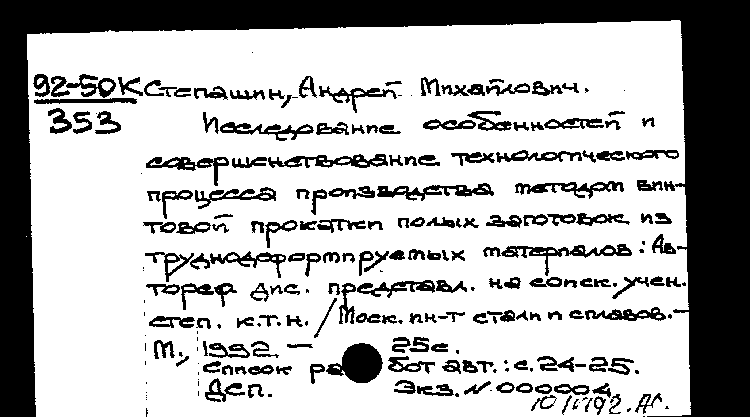 92-50К Степашин, Андрей Михайлович.
353 Исследование особенностей и
совершенствование технологического
процесса производства методом вин-
товой прокатки полых заготовок из
труднодеформируемых материалов: Ав-
тореф дис. представл. на соиск. учен.
степ. к.т.н. / Моск. ин-т стали и сплавов. –
М., 1992. – 25с.
Список работ авт.: с. 24-25.
Дсп. Экз. № 000004